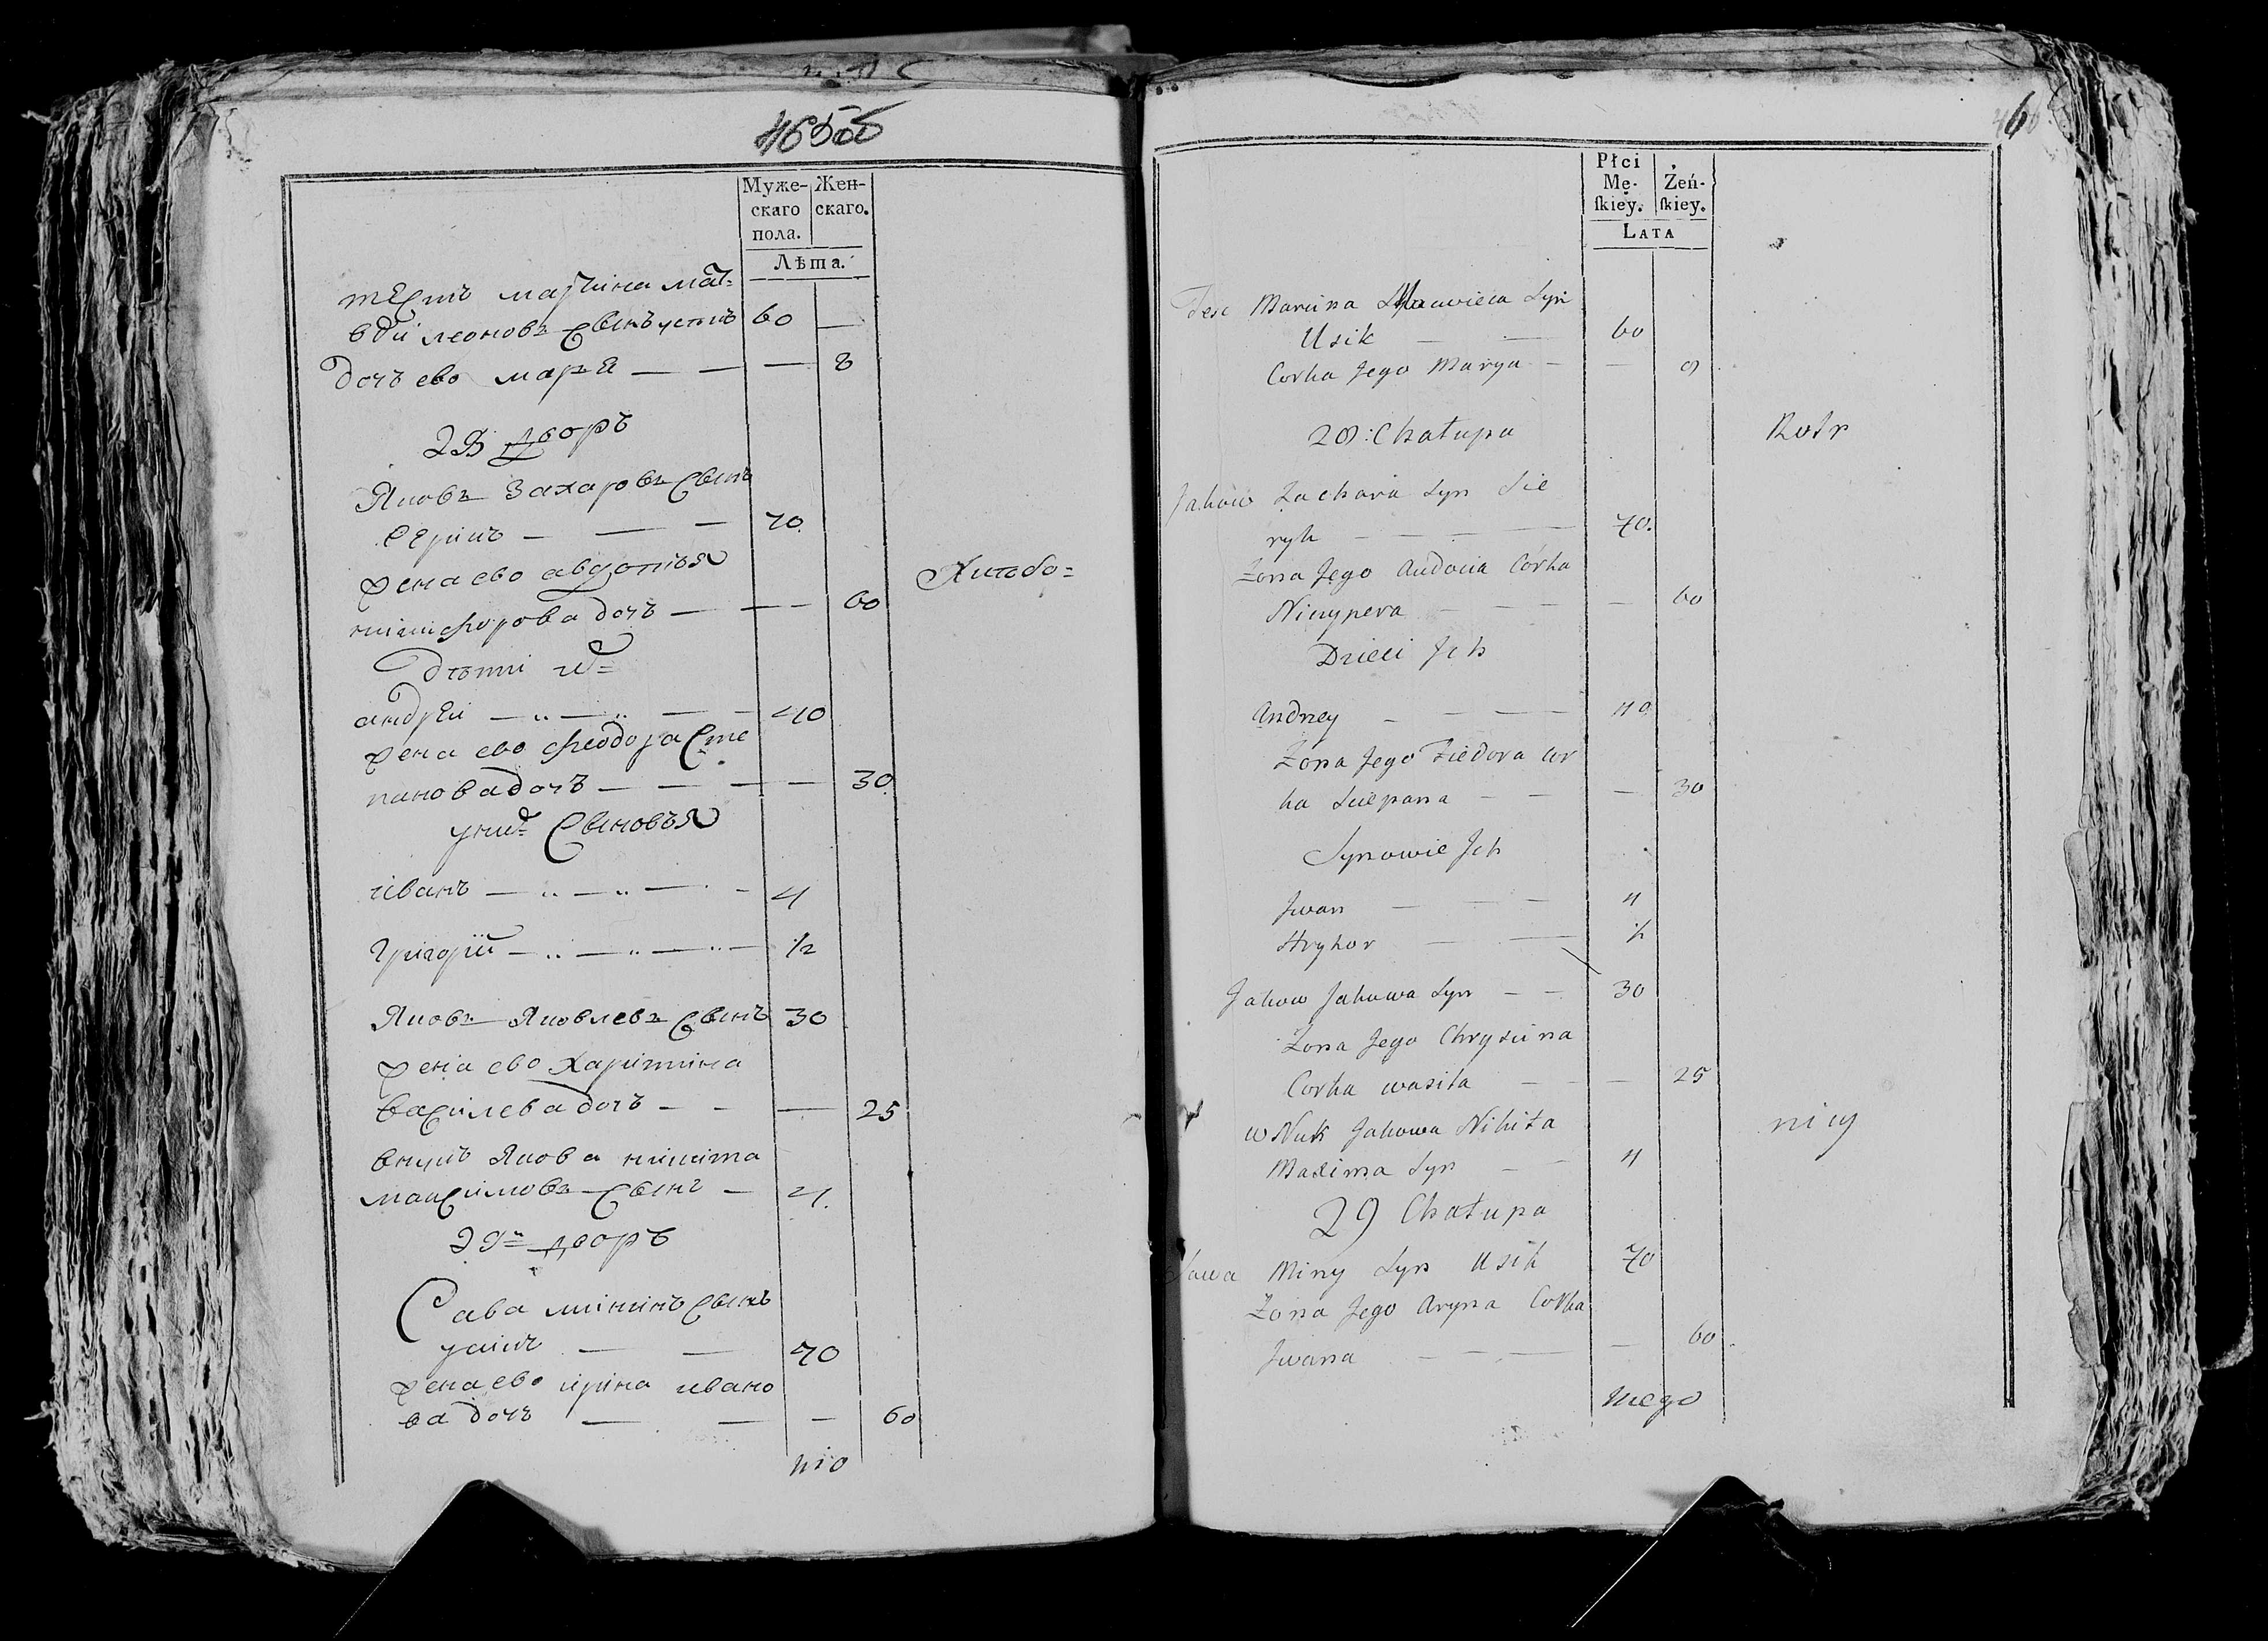 46 об
Муже- Жен-
скаго скаго.
пола.
Лѣта.
тесть мартина мат-
вѣй леоновъ сынъ усикъ 60 —
дочь ево маря — — — 8
28 дворъ
Яковъ Захаровъ сынъ
— — 70.
жена ево авдотья
никифорова дочь — — — 60
дѣти их
андрей — — — — 40
жена ево феодора сте
панова дочь — — — — 30
у них сыновья
иванъ — — — — 4
григорій — — — — ½
Яковъ Яковлевъ сынъ 30
жена ево харитина
василева дочь — — — 25
внукъ Якова никита
максимовъ сынъ — 4.
29 дворъ
Сава мининъ сынъ
усикъ — — 70
жена ево ирина ивано
ва дочь — — — 60
Хлѣбо=
6
Płci
Mę- Żeń-
ſkiey. ſkiey.
LATA
Marcina Syn
Usik — — 60
Corka Jego Marya — — 8
28: Chałupa
Jakow Zachara Syn Sie
ryk — — — — 70.
Żona Jego Audocia Córka
Nicypera — — — — 60
Dzieci Jch
Andrzey — — — 40
Żona Jego Fiedora Cor
ka Sciepana — — — 30
Synowie Jch
Jwan — — — 4
Hryhor — — ½
Jakow Jakowa Syn — — 30
Żona Jego Chryscina
Corka wasila — — — 25
wNuk Jakowa Nikita
Maxima Syn — — 4
29 Chałupa
Sawa Miny Syn Usik 70
Żona Jego Aryna Corka
Jwana — — — — 60
Rolr
nicy